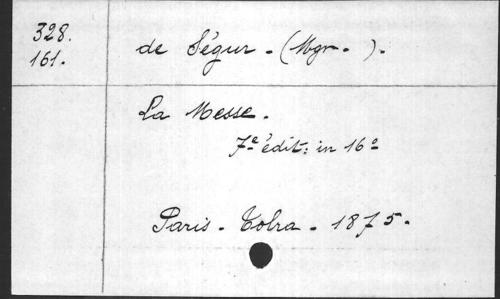 328.
161.
de Ségur. (Mgr. ).
La Messe.
7e édit: in 16o
Paris. Tolra. 1875.